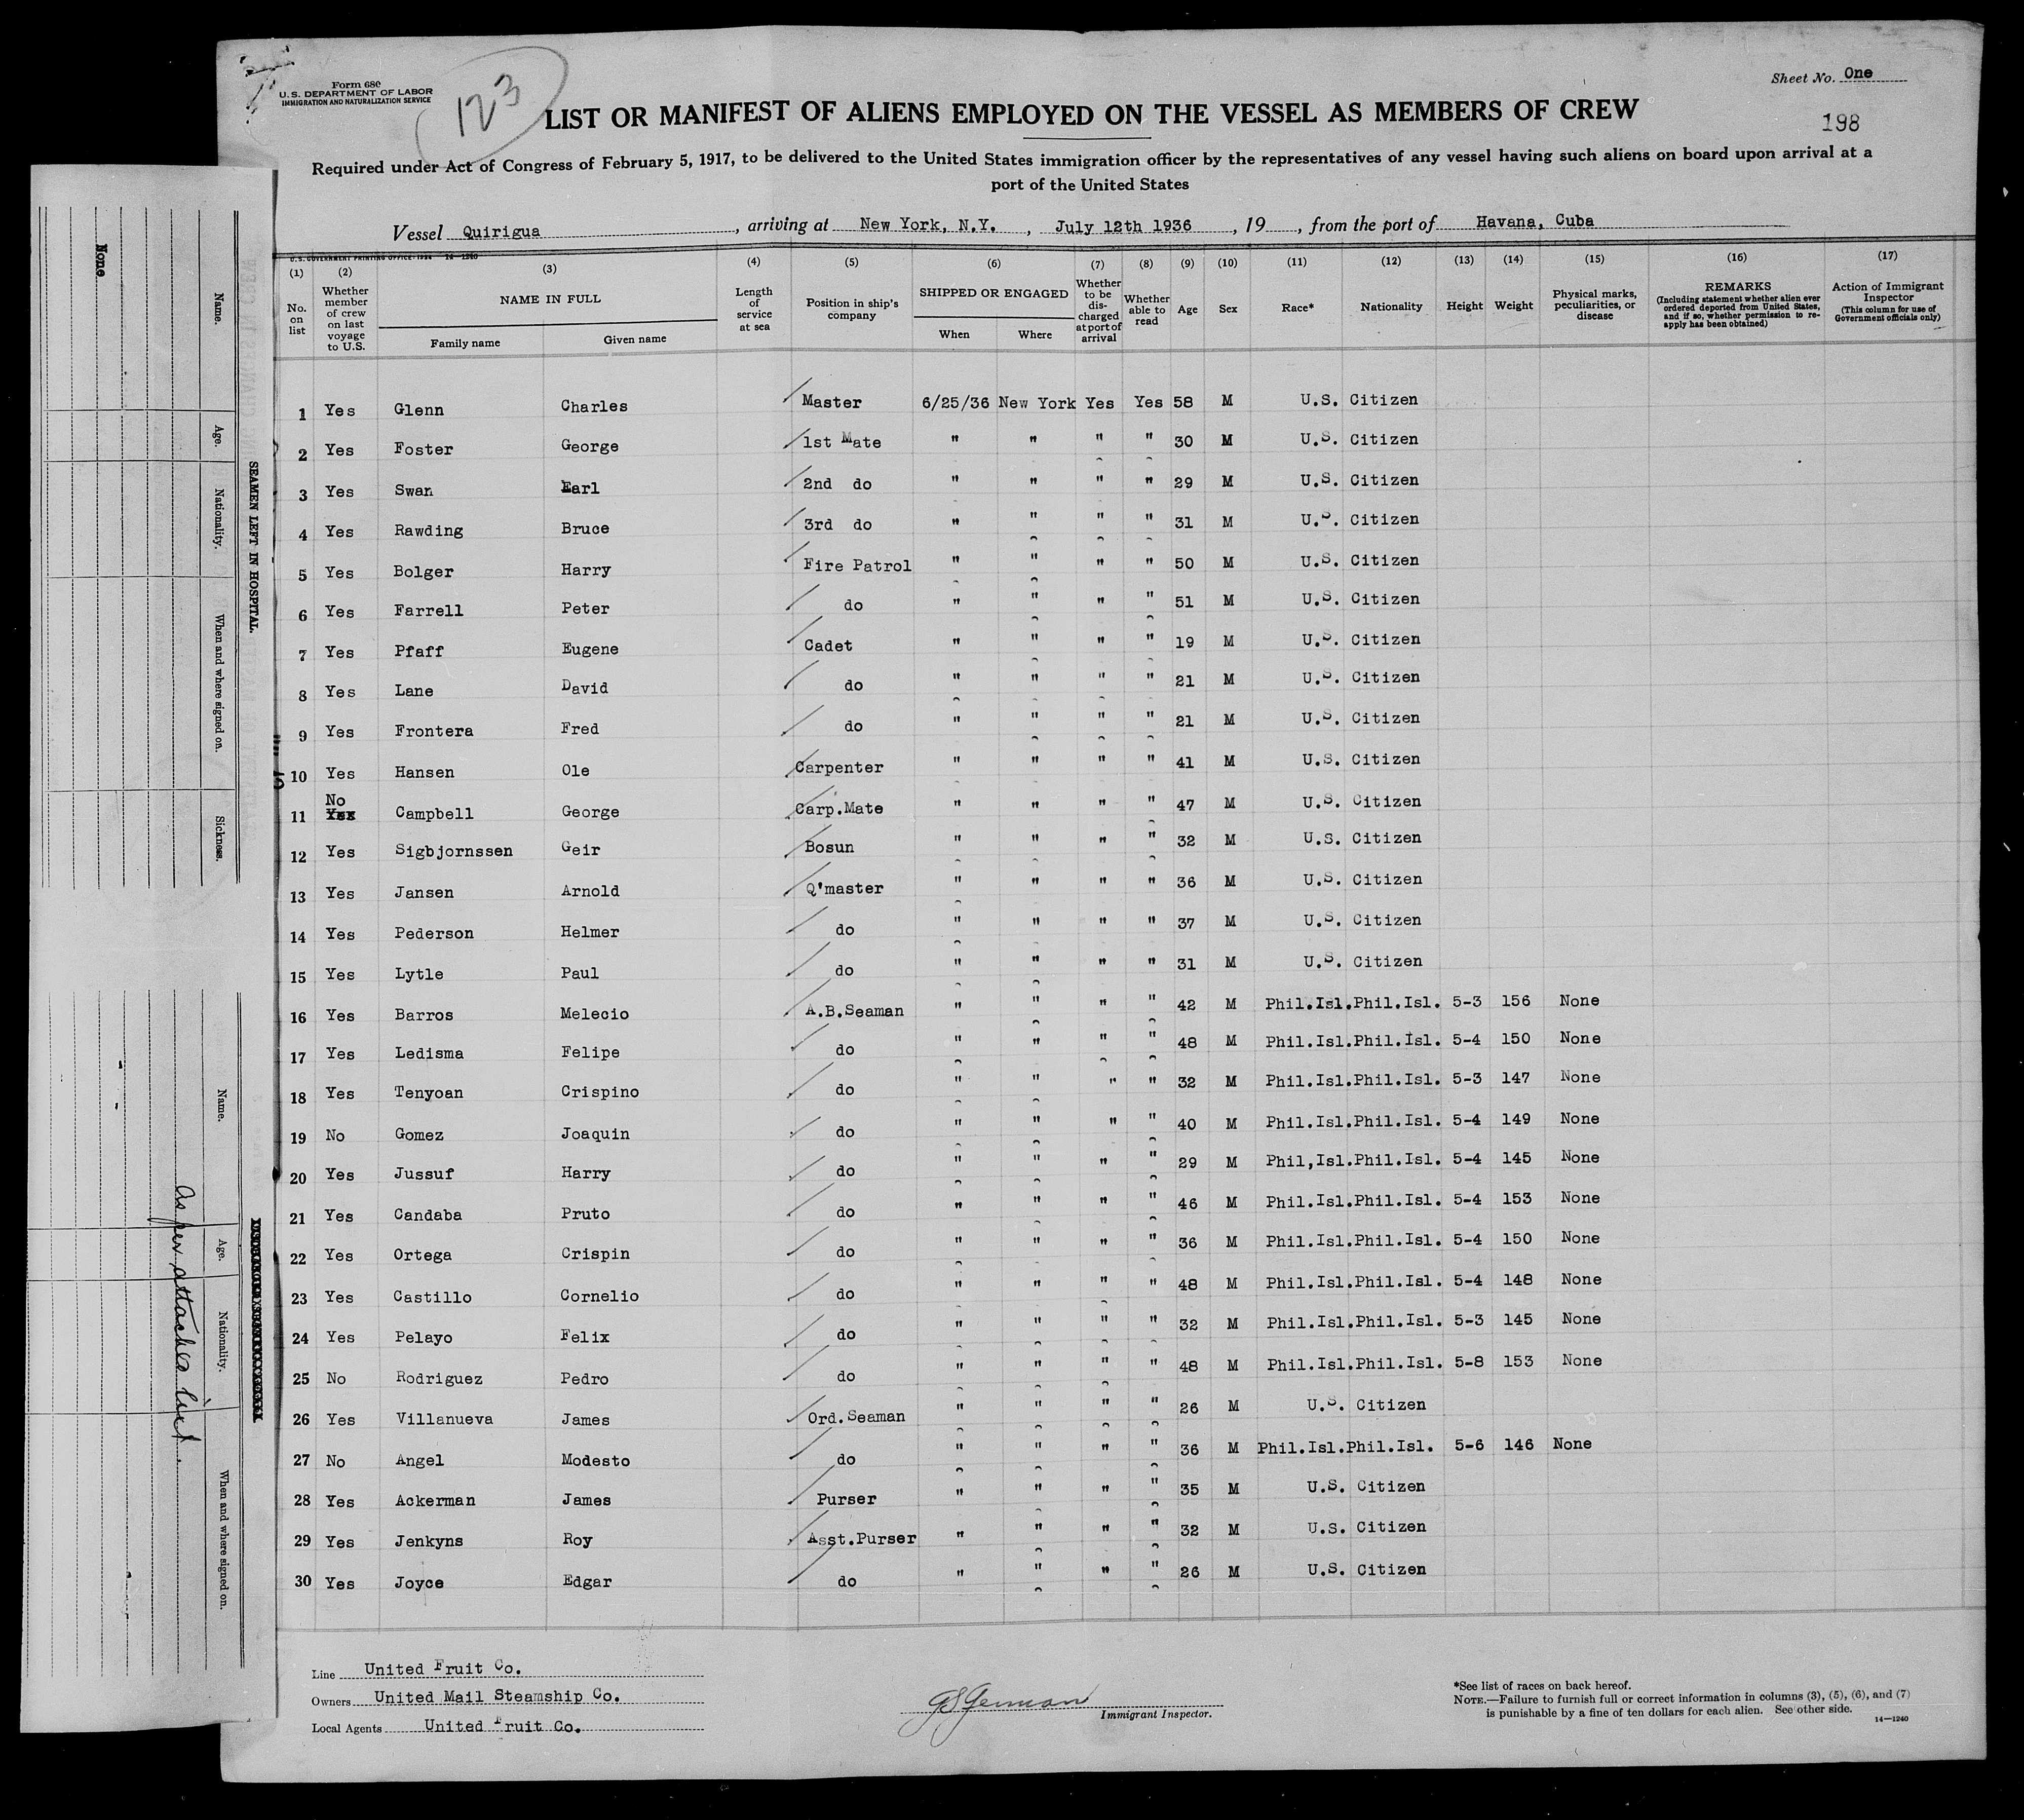 Form 680
U.S. DEPARTMENT OF LABOR
IMMIGRATION AND NATURALIZATION SERVICE
123
Sheet No. One
198
LIST OR MANIFEST OF ALIENS EMPLOYED ON THE VESSEL AS MEMBERS OF CREW
Required under Act of Congress of February 5, 1917, to be delivered to the United States immigration officer by the representatives of any vessel having such aliens on board upon arrival at a
port of the United States
Vessel Quirigua, arriving at New York, N.Y., July 12th 1936, 19, from the port of Havana, Cuba
U.S. GOVERNMENT PRINTING OFFICE
(1) (2) (3) (4) (5) (6) (7) (8) (9) (10) (11) (12) (13) (14) (15) (16) (17)
No. on list
Whether member of crew on last voyage to U.S.
NAME IN FULL
Family name
Given name
Length of service at sea
Position in ship's company
SHIPPED OR ENGAGED
When
Where
Whether to be discharged at port of arrival
Whether able to read
Age
Sex
Race*
Nationality
Height
Weight
Physical marks, peculiarities, or disease
REMARKS
(Including statement whether alien ever ordered deported from United States, and if so, whether permission to re-apply has been obtained)
Action of Immigrant Inspector
(This column for use of Government officials only)
1 Yes Glenn Charles Master 6/25/36 New York Yes Yes 58 M U.S. Citizen
2 Yes Foster George 1st Mate " " " " 30 M U.S. Citizen
3 Yes Swan Earl 2nd do " " " " 29 M U.S. Citizen
4 Yes Rawding Bruce 3rd do " " " " 31 M U.S. Citizen
5 Yes Bolger Harry Fire Patrol " " " " 50 M U.S. Citizen
6 Yes Farrell Peter do " " " " 51 M U.S. Citizen
7 Yes Pfaff Eugene Cadet " " " " 19 M U.S. Citizen
8 Yes Lane David do " " " " 21 M U.S. Citizen
9 Yes Frontera Fred do " " " " 21 M U.S. Citizen
10 Yes Hansen Ole Carpenter " " " " 41 M U.S. Citizen
11 No Yes Campbell George Carp.Mate " " " " 47 M U.S. Citizen
12 Yes Sigbjornssen Geir Bosun " " " " 32 M U.S. Citizen
13 Yes Jansen Arnold Q'master " " " " 36 M U.S. Citizen
14 Yes Pederson Helmer do " " " " 37 M U.S. Citizen
15 Yes Lytle Paul do " " " " 31 M U.S. Citizen
16 Yes Barros Melecio A.B.Seaman " " " " 42 M Phil.Isl. Phil.Isl. 5-3 156 None
17 Yes Ledisma Felipe do " " " " 48 M Phil.Isl. Phil.Isl. 5-4 150 None
18 Yes Tenyoan Crispino do " " " " 32 M Phil.Isl. Phil.Isl. 5-3 147 None
19 No Gomez Joaquin do " " " " 40 M Phil.Isl. Phil.Isl. 5-4 149 None
20 Yes Jussuf Harry do " " " " 29 M Phil,Isl. Phil.Isl. 5-4 145 None
21 Yes Candaba Pruto do " " " " 46 M Phil.Isl. Phil.Isl. 5-4 153 None
22 Yes Ortega Crispin do " " " " 36 M Phil.Isl. Phil.Isl. 5-4 150 None
23 Yes Castillo Cornelio do " " " " 48 M Phil.Isl. Phil.Isl. 5-4 148 None
24 Yes Pelayo Felix do " " " " 32 M Phil.Isl. Phil.Isl. 5-3 145 None
25 No Rodriguez Pedro do " " " " 48 M Phil.Isl. Phil.Isl. 5-8 153 None
26 Yes Villanueva James Ord.Seaman " " " " 26 M U.S. Citizen
27 No Angel Modesto do " " " " 36 M Phil.Isl. Phil.Isl. 5-6 146 None
28 Yes Ackerman James Purser " " " " 35 M U.S. Citizen
29 Yes Jenkyns Roy Asst.Purser " " " " 32 M U.S. Citizen
30 Yes Joyce Edgar do " " " " 26 M U.S. Citizen
Line United Fruit Co.
Owners United Mail Steamship Co.
Local Agents United Fruit Co.
GS German
Immigrant Inspector.
*See list of races on back hereof.
NOTE.—Failure to furnish full or correct information in columns (3), (5), (6), and (7)
is punishable by a fine of ten dollars for each alien. See other side.
14—1240
SEAMEN LEFT IN HOSPITAL.
Name. Age. Nationality. When and where signed on. Sickness.
None
Name. Age. Nationality. When and where signed on.
As per attached list.